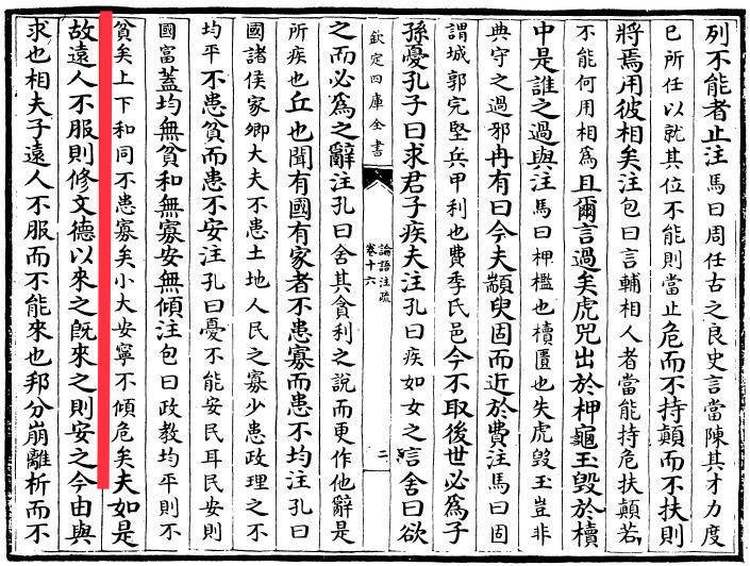 列不能者止注馬曰周任古之良史言當陳其才力度
已所任以就其位不能則當止危而不持顛而不扶則
將焉用彼相矣注包曰言輔相人者當能持危扶顛若
不能何用相爲且爾言過矣虎兕出於柙龜玉毀於櫝
中是誰之過與注馬曰柙檻也櫝匱也失虎毀玉豈非
典守之過邪冉有曰今夫顓臾固而近於費注馬曰固
謂城郭完堅兵甲利也費季氏邑今不取後世必爲子
孫憂孔子曰求君子疾夫注孔曰疾如女之言舍曰欲
欽定四庫全書
論語注疏
卷十六
二
之而必爲之辭注孔曰舍其貪利之說而更作他辭是
所疾也丘也聞有國有家者不患寡而患不均注孔曰
國諸侯家卿大夫不患土地人民之寡少患政理之不
均平不患貧而患不安注孔曰憂不能安民耳民安則
國富蓋均無貧和無寡安無傾注包曰政教均平則不
貧矣上下和同不患寡矣小大安寧不傾危矣夫如是
故遠人不服則修文德以來之旣來之則安之今由與
求也相夫子遠人不服而不能來也邦分崩離析而不